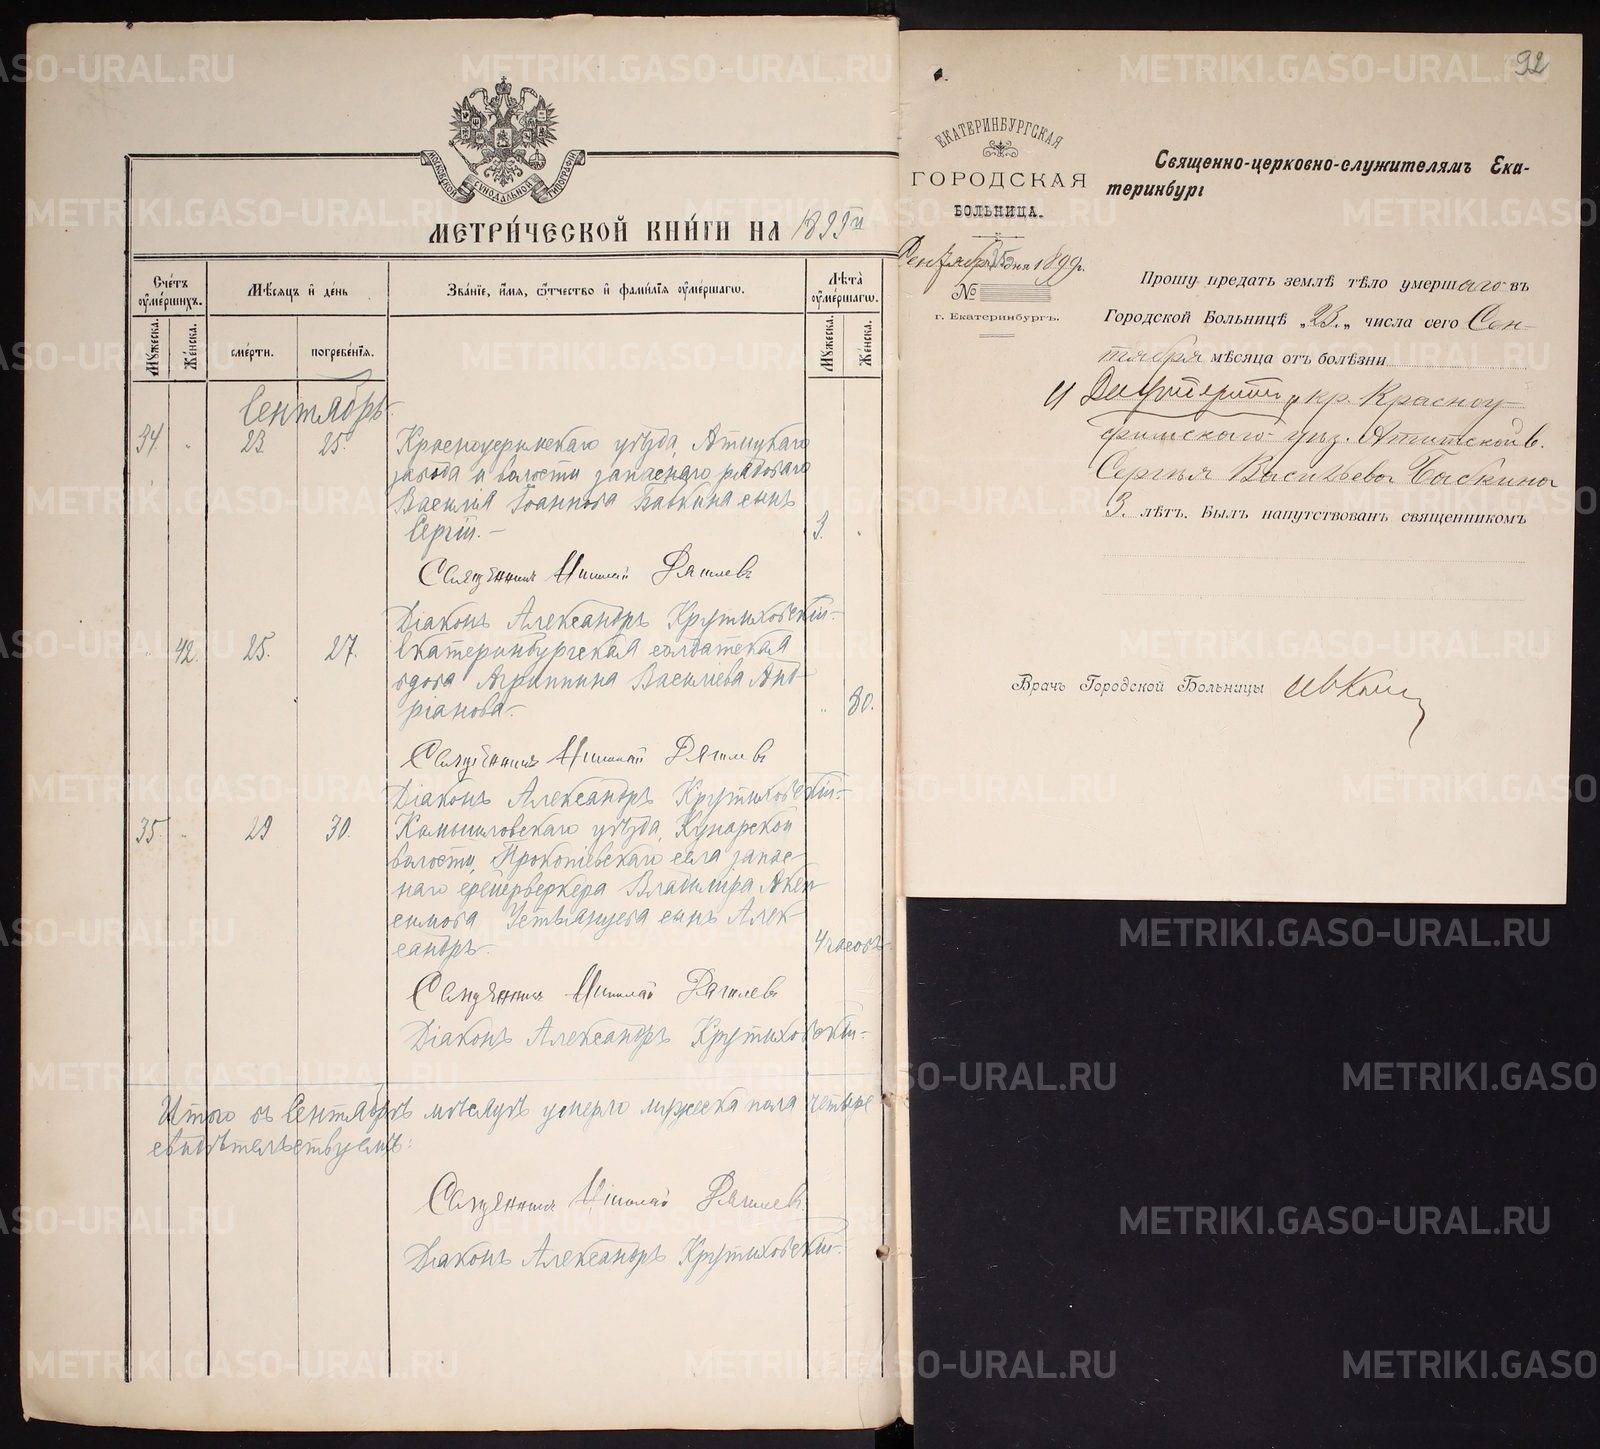 МОСКОВСКОЙ СИНОДАЛЬНОЙ ТИПОГРАФІИ
МЕТРИ́ЧЕСКОЙ КНИ́ГИ НА 1899й
Сче́тъ оуме́ршихъ.
Мѣсяцъ и де́нь
Зва́нїе, и́мя, о́тчество и фами́лїя оуме́ршагѡ.
Лѣта̀ оуме́ршагѡ.
Мꙋ́жеска.
Же́нска.
сме́рти.
погребе́нїѧ.
Мꙋ́жеска.
Же́нска.
Сентябрь.
34. " 23. 25. Красноуфимскаго уѣзда, Атицкаго
завода и волости запаснаго рядоваго
Василія Іоаннова Бабкина сынъ
Сергій. 3. "
Священникъ Николай Дягилевъ
Діаконъ Александръ Крутиховскій.
" 42. 25. 27. Екатеринбургская солдатская
вдова Агриппина Василіева Анд-
ріанова. " 80.
Священникъ Николай Дягилевъ
Діаконъ Александръ Крутиховскій.
35. " 29 30. Камышловскаго уѣзда, Кунарской
волости, Прокопіевскаго села запас-
наго фейерверкера Владиміра Ак
симова Устьянцева сынъ Алек-
сандръ. 4 часовъ.
Священникъ Николай Дягилевъ
Діаконъ Александръ Крутиховскій.
Итого въ Сентябрѣ мѣсяцѣ умерло мужеска пола четыре
свидѣтельствуемъ:
Священникъ Николай Дягилевъ
Діаконъ Александръ Крутиховскій.
92
ЕКАТЕРИНБУРГСКАЯ
ГОРОДСКАЯ
БОЛЬНИЦА.
Сентября 25 дня 1899 г.
№
г. Екатеринбургъ.
Священно-церковно-служителямъ Ека-
теринбург
Прошу предать землѣ тѣло умершаго въ
Городской Больницѣ „23.„ числа сего Сен-
тября мѣсяца отъ болѣзни
Дифтеритъ кр. Красноу-
фимскаго уѣз. Атитской в.
Сергѣя Васильева Баскина
3. лѣтъ. Былъ напутствованъ священникомъ
Врачъ Городской Больницы
METRIKI.GASO-URAL.RU